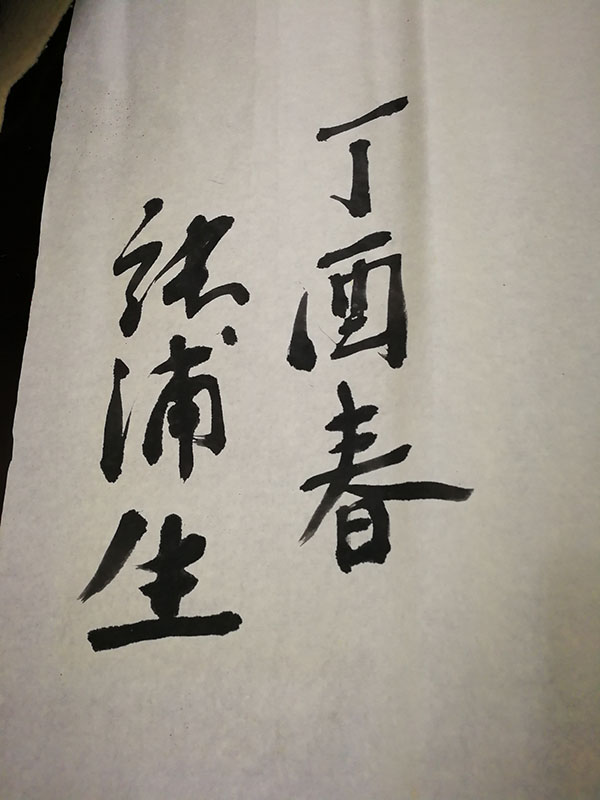 丁酉春
张浦生